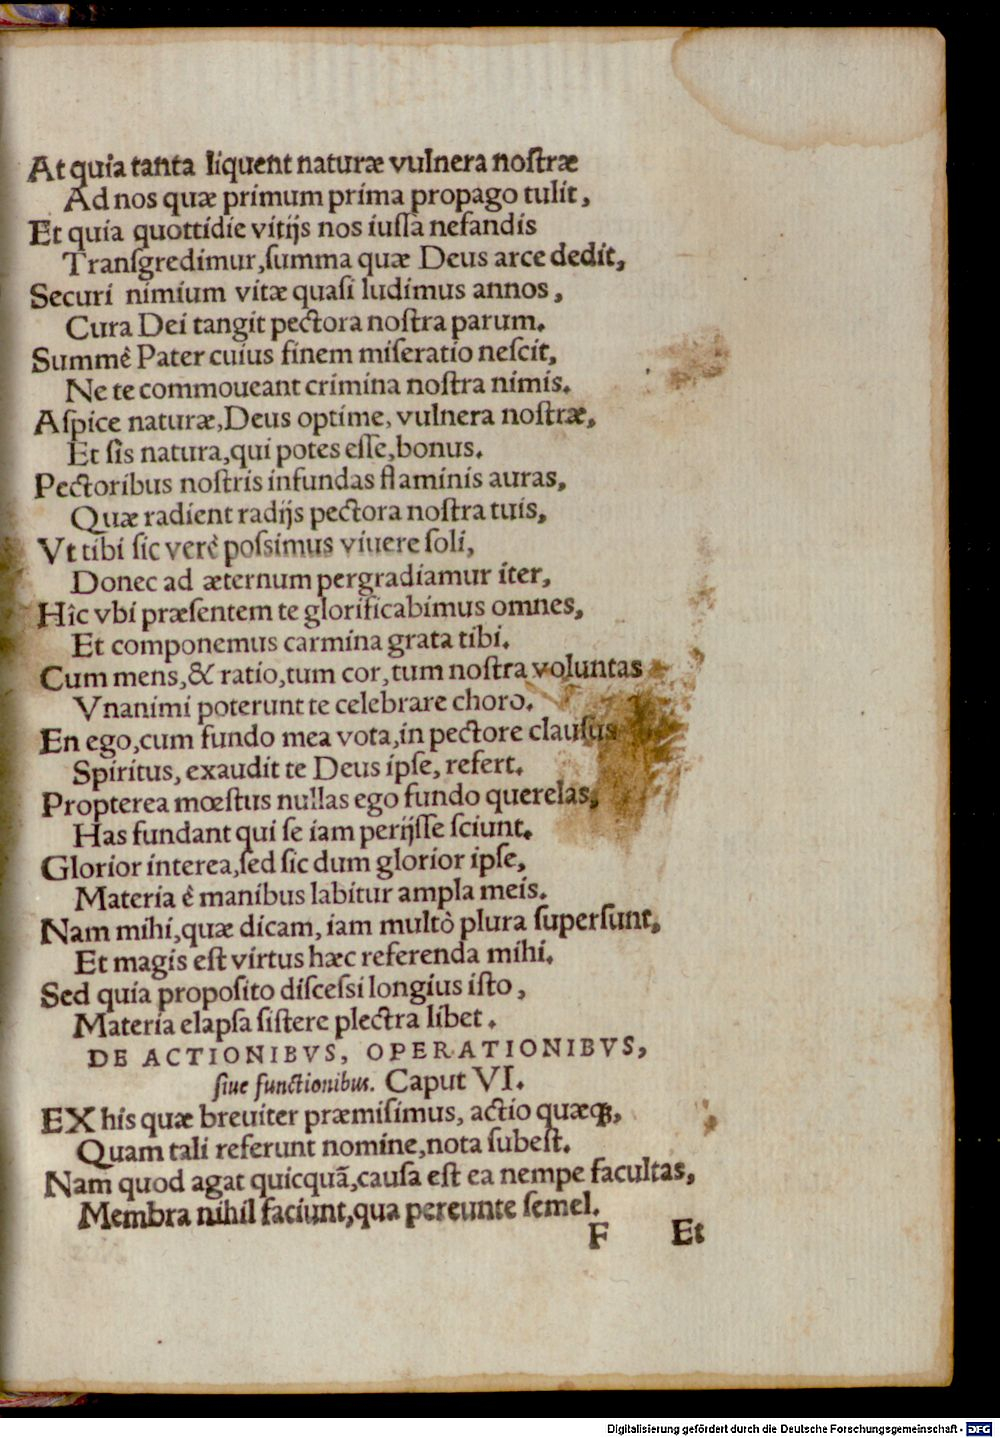 At quia tanta liquent naturæ vulnera noſtræ
Ad nos quæ primum prima propago tulit,
Et quia quottidie vitijs nos iuſſa nefandis
Tranſgredimur, ſumma quæ Deus arce dedit,
Securi nimium vitæ quaſi ludimus annos,
Cura Dei tangit pectora noſtra parum.
Summê Pater cuius finem miſeratio neſcit,
Ne te commoueant crimina noſtra nimis.
Aſpice naturæ, Deus optime, vulnera noſtræ,
Et ſis natura, qui potes eſſe, bonus.
Pectoribus noſtris infundas flaminis auras,
Quæ radient radijs pectora noſtra tuis,
Vt tibi ſic verè poſsimus viuere ſoli,
Donec ad æternum pergradiamur iter,
Hîc vbi præſentem te glorificabimus omnes,
Et componemus carmina grata tibi.
Cum mens, & ratio, tum cor, tum noſtra voluntas
Vnanimi poterunt te celebrare choro.
En ego, cum fundo mea vota, in pectore clauſus
Spiritus, exaudit te Deus ipſe, refert.
Propterea mœſtus nullas ego fundo querelas,
Has fundant qui ſe iam perijſſe ſciunt.
Glorior interea, ſed ſic dum glorior ipſe,
Materia è manibus labitur ampla meis.
Nam mihi, quæ dicam, iam multò plura ſuperſunt,
Et magis eſt virtus hæc referenda mihi.
Sed quia propoſito diſceſsi longius iſto,
Materia elapſa ſiſtere plectra libet.
DE ACTIONIBVS, OPERATIONIBVS,
ſiue functionibus. Caput VI.
EX his quæ breuiter præmiſimus, actio quæq;,
Quam tali referunt nomine, nota ſubeſt.
Nam quod agat quicquã, cauſa eſt ea nempe facultas,
Membra nihil faciunt, qua pereunte ſemel.
F Et
Digitalisierung gefördert durch die Deutsche Forschungsgemeinschaft - DFG